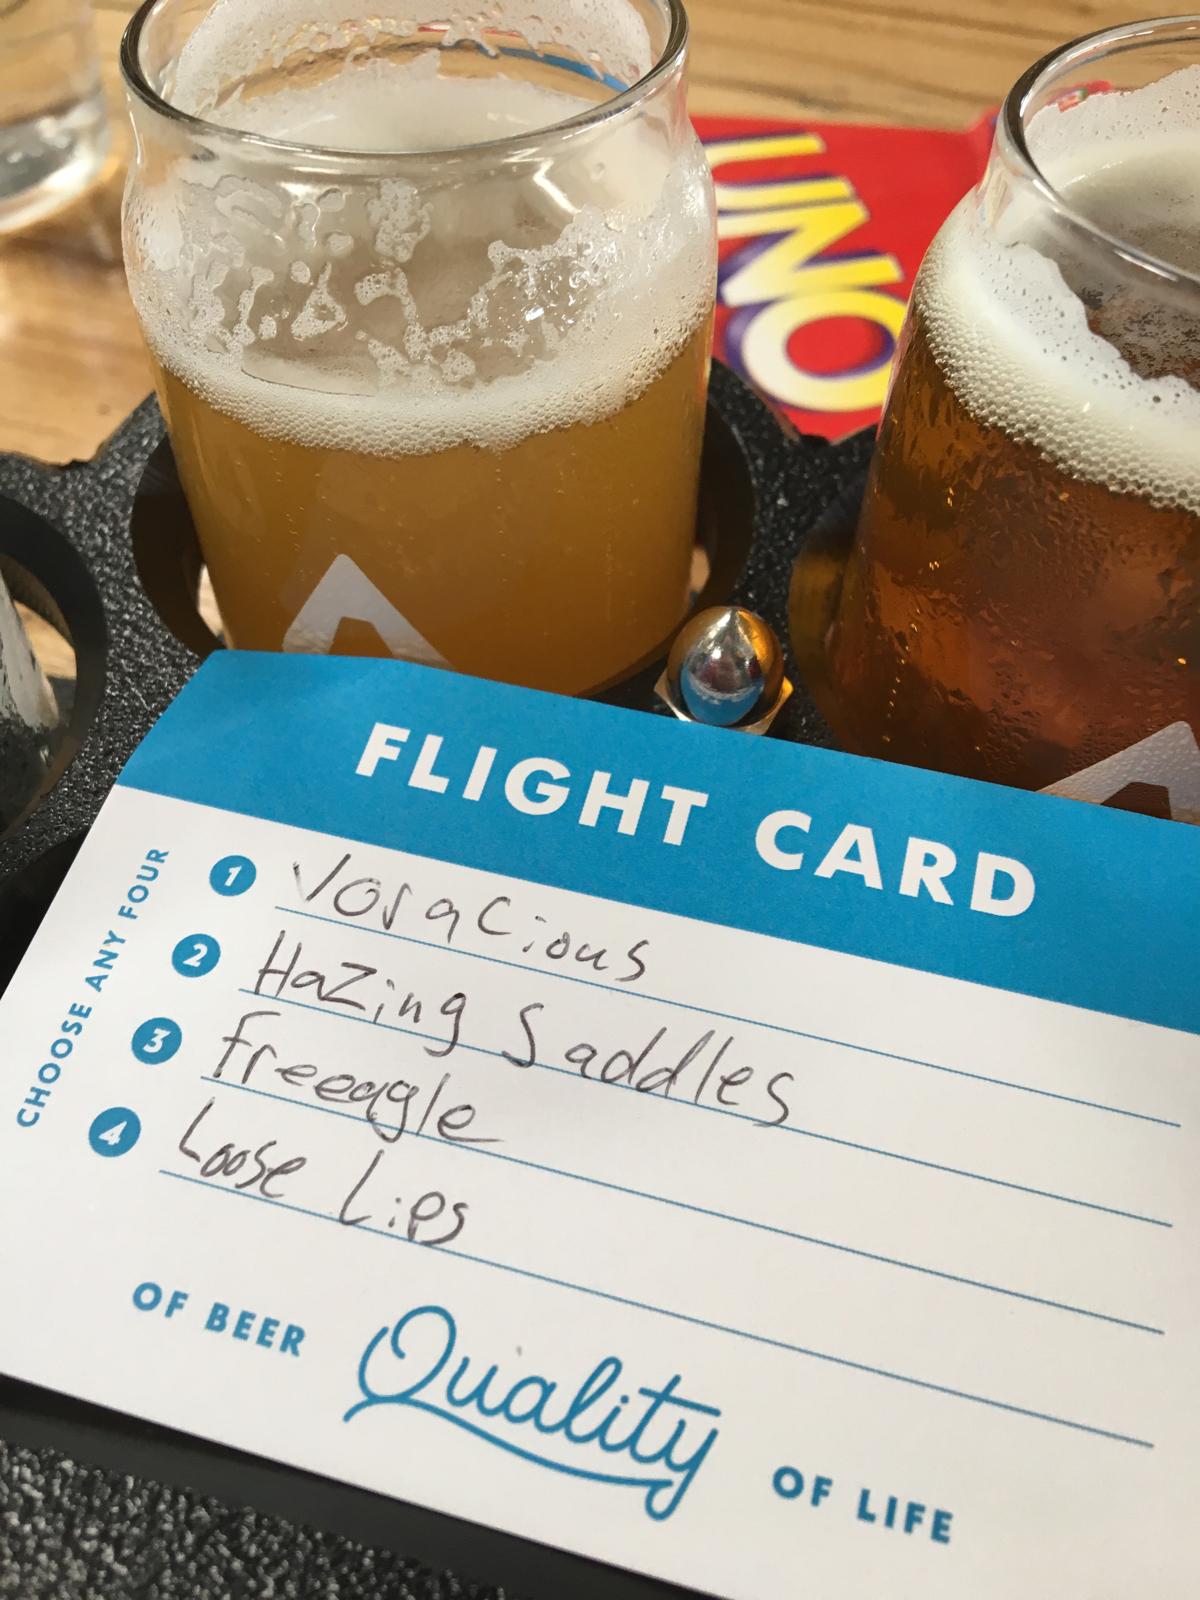 UNO
FLIGHT CARD
CHOOSE ANY FOUR
1 Voracious
2 Hazing Saddles
3 Freeagle
4 Loose Lips
OF BEER Quality OF LIFE